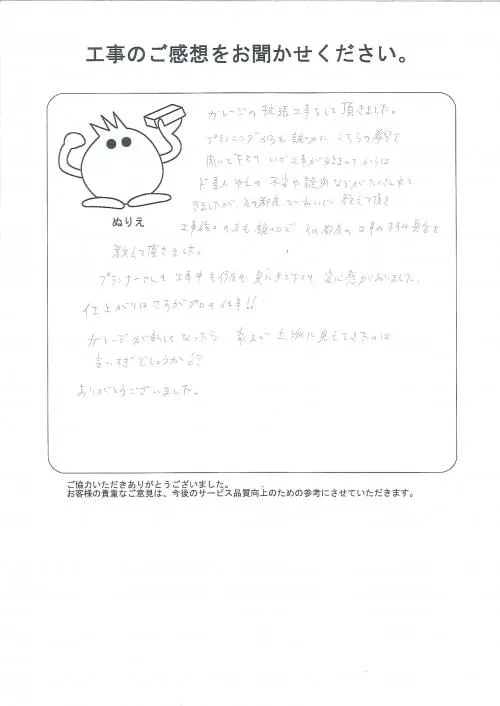 工事のご感想をお聞かせください。
ガレージの拡張工事をして頂きました。
プランニングから も親切に こちらの希望を
聞いて下さり いざ工事が始まってからは
ド素人ゆえの 不安や疑問などがたくさん出て
きましたが、その都度 ていねいに 教えて頂き
工事施工の方も 親切で その都度の 工事のすすみ具合を
教えて頂きました。
プランナーさんも 工事中も何度も 見にきて下さり、安心感がありました。
仕上がりは さすがプロの仕事!!
ガレージが新しくなったら 家まで 立派に見えてきたのは
言いすぎでしょうか!?
ありがとうございました。
ぬりえ
ご協力いただきありがとうございました。
お客様の貴重なご意見は、今後のサービス品質向上のための参考にさせていただきます。